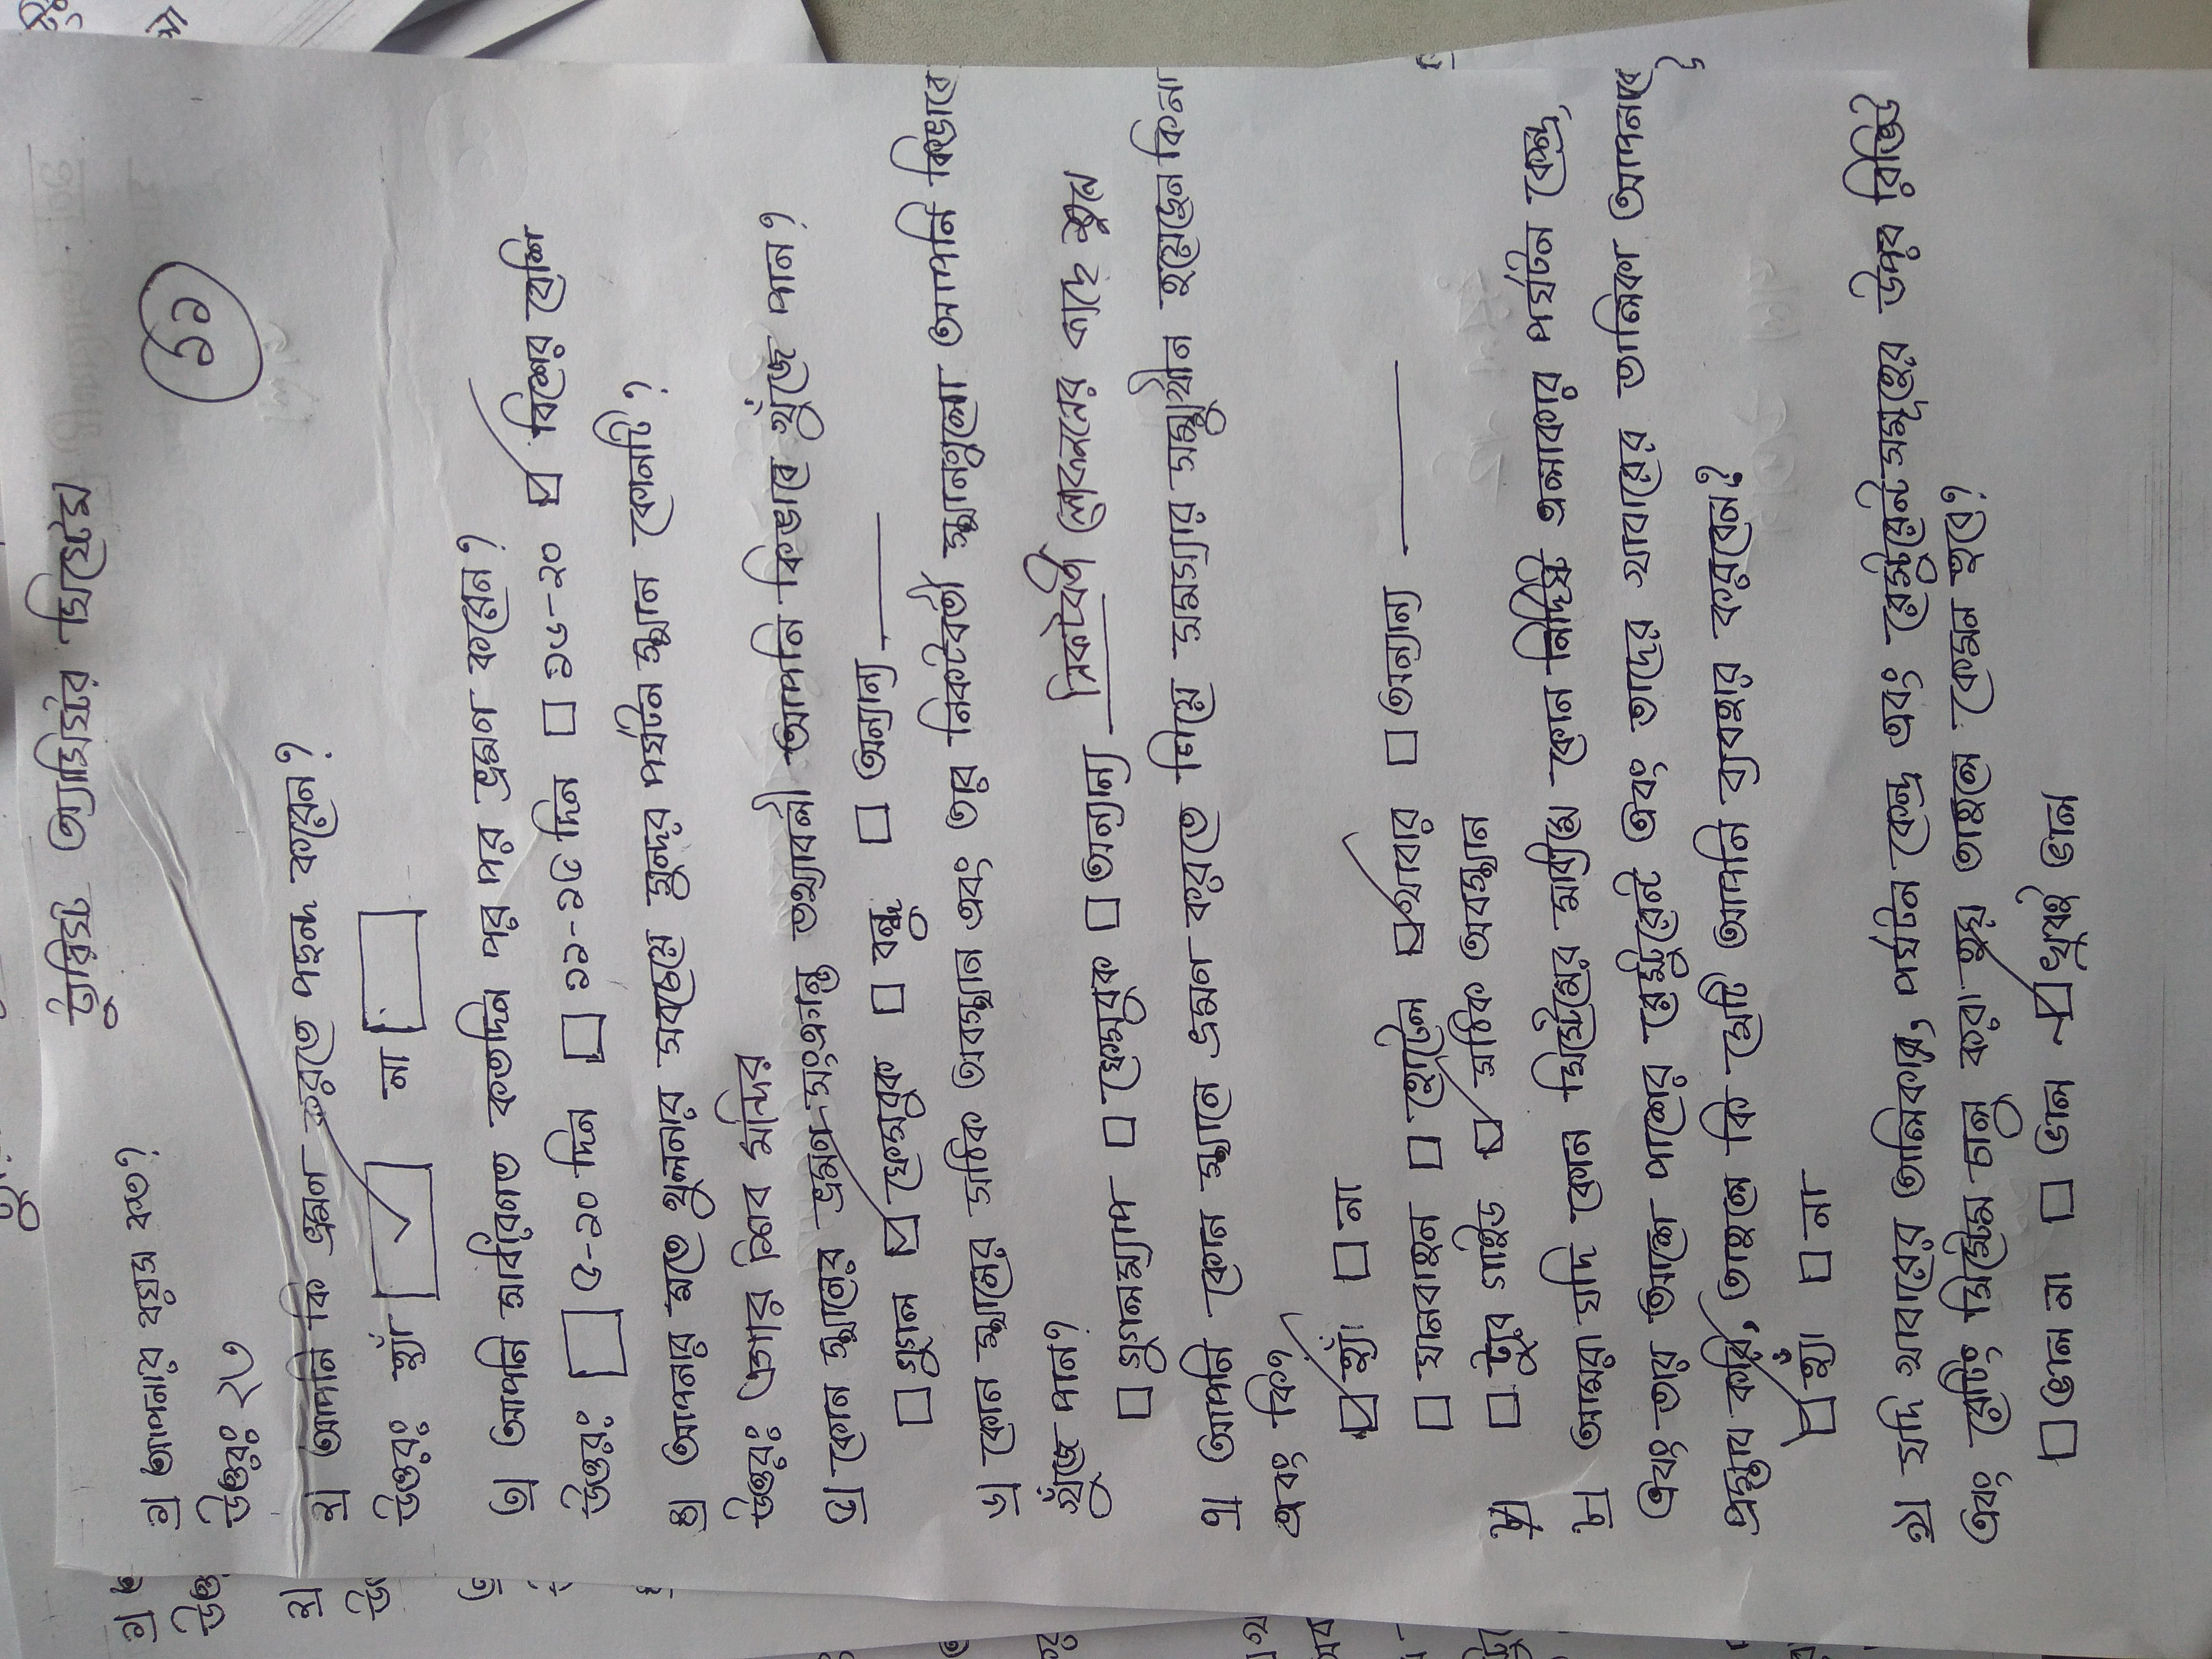 টুরিস্ট অ্যাসিস্টর সিস্টেম
৬১
১) আপনার বয়স কত?
উত্তরঃ ২৩
২) আপনি কি ভ্রমণ করতে পছন্দ করেন?
উত্তরঃ হ্যাঁ ☑ না ☐
৩) আপনি সাধারণত কতদিন পর পর ভ্রমণ করেন?
উত্তরঃ ☐ ৫-১০ দিন ☐ ১১-১৫ দিন ☐ ১৬-২০ ☑ বিশের বেশি
৪) আপনার মতে খুলনার সবচেয়ে সুন্দর পর্যটন স্থান কোনটি?
উত্তরঃ জোর শিব মন্দির
৫) কোন স্থানের ভ্রমণ-সংক্রান্ত তথ্যাবলী আপনি কিভাবে খুঁজে পান?
☐ গুগল ☑ ফেসবুক ☐ বন্ধু ☐ অন্যান্য
৬) কোন স্থানের সঠিক অবস্থান এবং তার নিকটবর্তী স্থানগুলো আপনি কিভাবে
খুঁজে পান?
☐ গুগলম্যাপ ☐ ফেসবুক ☐ অন্যান্য নিকটবর্তী লোকজনের কাছে শুনে
৭) আপনি কোন স্থানে ভ্রমণ করতে গিয়ে সমস্যার সম্মুখীন হয়েছেন কিনা
এবং কি?
☑ হ্যাঁ ☐ না
☐ যানবাহন ☐ হোটেল ☑ খাবার ☐ অন্যান্য
☐ ট্যুর গাইড ☑ সঠিক অবস্থান
৮) আমরা যদি কোন সিস্টেমের মাধ্যমে কোন নির্দিষ্ট এলাকার পর্যটন কেন্দ্র,
এবং তার আশে পাশের রেস্টুরেন্ট এবং তাদের খাবারের তালিকা আপনাকে
প্রস্তাব করি, তাহলে কি সেটি আপনি ব্যবহার করবেন?
☑ হ্যাঁ ☐ না
৯) যদি খাবারের তালিকায়, পর্যটন কেন্দ্র এবং রেস্টুরেন্টসমূহের উপর রিভিউ
এবং রেটিং সিস্টেম চালু করা হয় তাহলে কেমন হবে?
☐ ভাল না ☐ ভাল ☑ খুবই ভাল